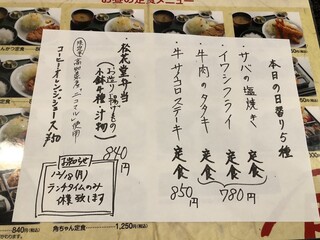 お昼の定食メニュー
本日の日替り5種
・サバの塩焼き 定食
・イワシフライ 定食
・牛肉のタタキ 定食
780円
・牛サイコロステーキ 定食 850円
・松花堂弁当
(お造り・揚げもの
小鉢4種・汁物)
840円
コーヒー・オレンジジュース ¥50
お知らせ
12/18(月)
ランチタイムのみ
休業致します
840円(税込)
角ちゃん定食
1,250円(税込)